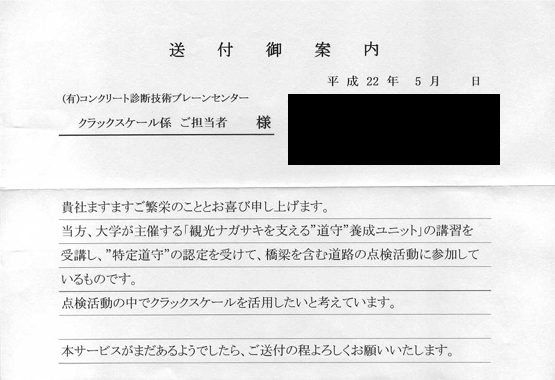 送付御案内
平成 22 年 5 月 日
(有)コンクリート診断技術ブレーンセンター
クラックスケール係 ご担当者 様
貴社ますますご繁栄のこととお喜び申し上げます。
当方、大学が主催する「観光ナガサキを支える"道守"養成ユニット」の講習を
受講し、"特定道守"の認定を受けて、橋梁を含む道路の点検活動に参加して
いるものです。
点検活動の中でクラックスケールを活用したいと考えています。
本サービスがまだあるようでしたら、ご送付の程よろしくお願いいたします。